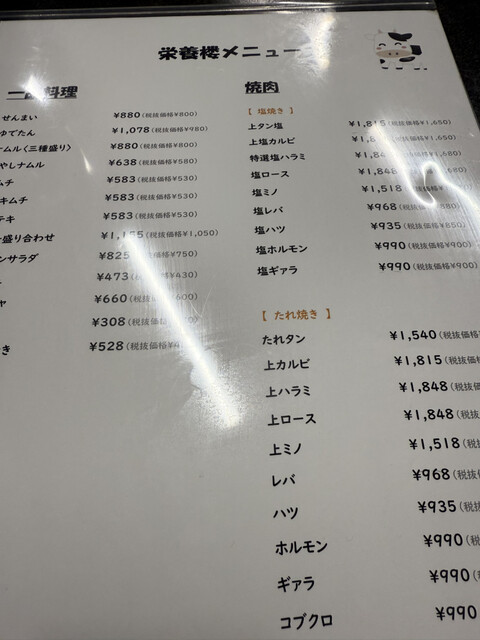 栄養楼メニュー
一品料理
せんまい ¥880(税抜価格¥800)
ゆでたん ¥1,078(税抜価格¥980)
ナムル〈三種盛り〉 ¥880(税抜価格¥800)
やしナムル ¥638(税抜価格¥580)
ムチ ¥583(税抜価格¥530)
キムチ ¥583(税抜価格¥530)
テキ ¥583(税抜価格¥530)
盛り合わせ ¥1,155(税抜価格¥1,050)
ンサラダ ¥825(税抜価格¥750)
¥473(税抜価格¥430)
ャ ¥660(税抜価格¥600)
¥308(税抜価格
き ¥528(税抜価格
焼肉
【 塩焼き 】
上タン塩 ¥1,815(税抜価格¥1,650)
上塩カルビ (税抜価格¥1,650)
特選塩ハラミ
塩ロース ¥1,848
塩ミノ ¥1,518
塩レバ ¥968(税抜価格¥880)
塩ハツ ¥935(税抜価格¥850)
塩ホルモン ¥990(税抜価格¥900)
塩ギァラ ¥990(税抜価格¥900)
【 たれ焼き 】
たれタン ¥1,540(税抜価格
上カルビ ¥1,815(税抜価格
上ハラミ ¥1,848(税抜価
上ロース ¥1,848(税抜
上ミノ ¥1,518(税抜
レバ ¥968(税抜
ハツ ¥935(税抜
ホルモン ¥990(税
ギァラ ¥990(税
コブクロ ¥990